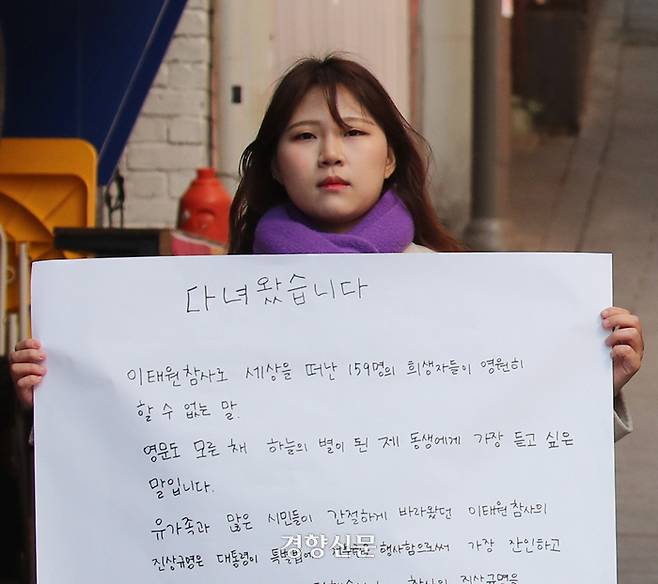 다녀왔습니다
이태원참사로 세상을 떠난 159명의 희생자들이 영원히
할 수 없는 말.
영문도 모른 채 하늘의 별이 된 제 동생에게 가장 듣고 싶은
말입니다.
유가족과 많은 시민들이 간절하게 바라왔던 이태원참사의
진상규명은 대통령이 특별법에 행사함으로써 가장 잔인하고
진상규명을
경향신문